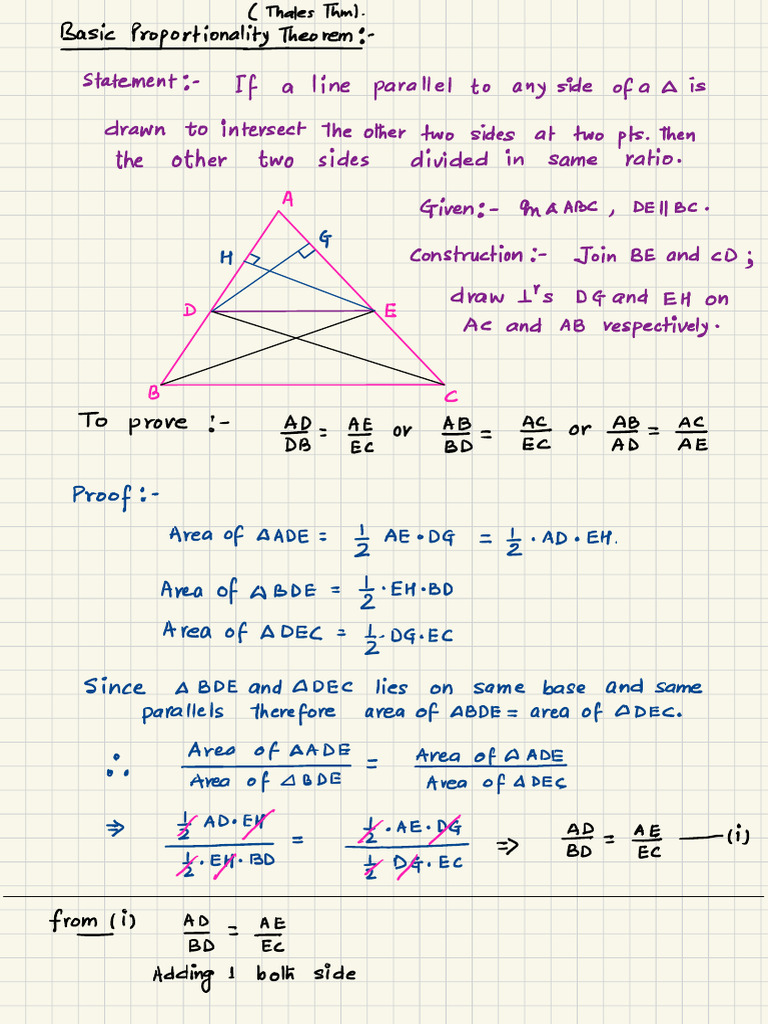 (Thales Thm).
Basic Proportionality Theorem:-
Statement:- If a line parallel to any side of a Δ is
drawn to intersect the other two sides at two pts. then
the other two sides divided in same ratio.
Given:- In Δ ABC, DE || BC.
Construction:- Join BE and CD;
draw ⊥ʳs DG and EH on
AC and AB respectively.
A
G
H
D
E
B
C
To prove :- AD/DB = AE/EC or AB/BD = AC/EC or AB/AD = AC/AE
Proof:-
Area of ΔADE = 1/2 AE·DG = 1/2 · AD · EH.
Area of ΔBDE = 1/2 · EH · BD
Area of ΔDEC = 1/2 · DG · EC
Since ΔBDE and ΔDEC lies on same base and same
parallels therefore area of ΔBDE = area of ΔDEC.
∴ Area of ΔADE / Area of ΔBDE = Area of ΔADE / Area of ΔDEC
⇒ 1/2 AD·EH / 1/2 · EH · BD = 1/2 · AE · DG / 1/2 DG · EC ⇒ AD/BD = AE/EC —(i)
from (i) AD/BD = AE/EC
Adding 1 both side